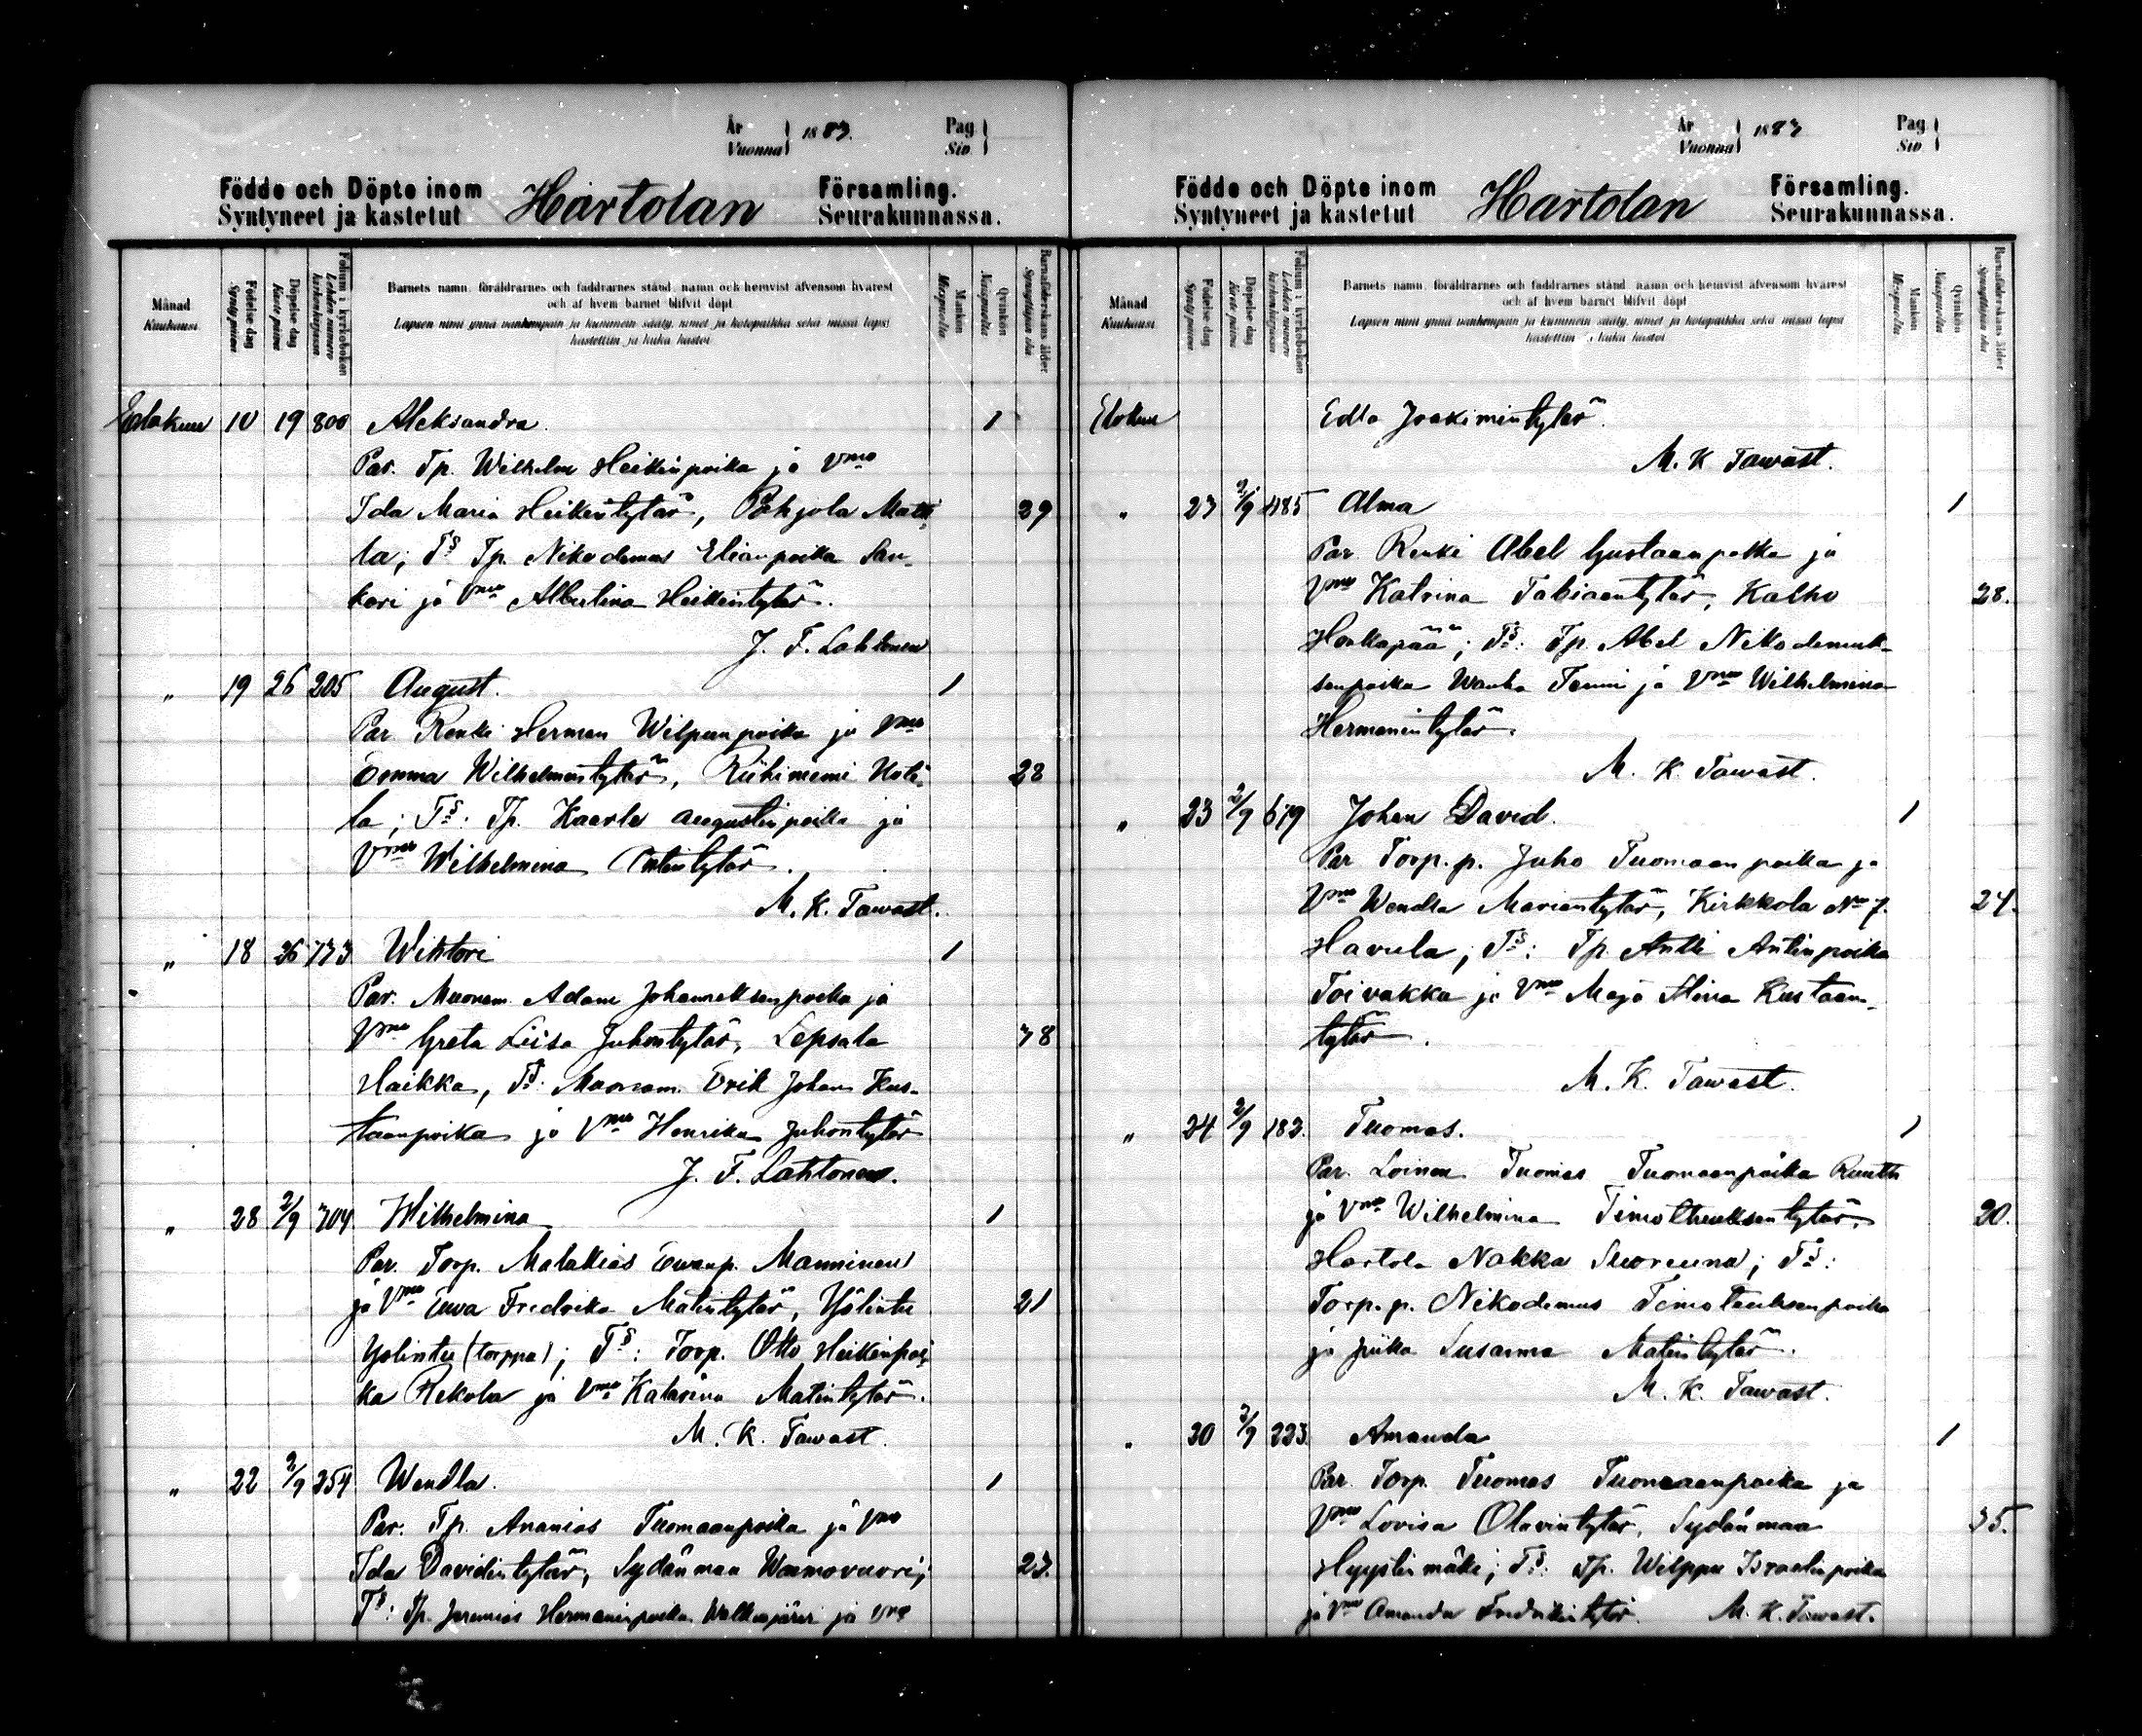 År
Vuonna 1883.
Pag.
Siv.
Födde och Döpte inom
Syntyneet ja kastetut
Hartolan
Församling.
Seurakunnassa.
Månad
Kuukausi
Födelse dag
Synty päivä
Döpelse dag
Kaste päivä
Folium i kyrkoboken
Lehden numero kirkonkirjassa
Barnets namn, föräldrarnes och faddrarnes stånd, namn och hemvist äfvensom hvarest
och af hvem barnet blifvit döpt.
Lapsen nimi ynnä vanhempain ja kummein sääty, nimet ja kotopaikka sekä missä lapsi
kastettiin ja kuka kastoi
Mankön
Miespuolta
Qvinkön
Vaimopuolta
Barnaföderskans ålder
Synnyttäjän ikä
Elokuu 10 19 800 Aleksandra. 1
Par. Tp. Wilhelm Heikinpoika ja Vmo
Ida Maria Heikintytär, Pohjola Matti- 29
la; Ts Tp. Nikodemus Elianpoika San-
kari ja Vmo Albertina Heikintytär.
J. F. Lahtonen
" 19 26 205 August. 1
Par. Renki Herman Wilpunpoika ja Vmo
Emma Wilhelmintytär, Riihiniemi Uoti- 28
la; Ts: Tp. Kaarle Augustinpoika ja
Vmo Wilhelmina Antintytär.
M. K. Tawast.
" 18 26 773 Wihtori 1
Par. Muonam. Adam Johanneksenpoika ja
Vmo Greta Liisa Juhontytär, Lepsala 38
Haikka, Ts: Muonam. Erik Johan Kus-
taanpoika ja Vmo Henrika Juhontytär
J. F. Lahtonen.
" 28 2/9 704 Wilhelmina 1
Par. Torp. Malakias Ewanp. Manninen
ja Vmo Ewa Fredrika Matintytär, Yölintu 21
Yölintu (torppa); Ts: Torp. Otto Heikinpoi-
ka Rekola ja Vmo Katarina Matintytär.
M. K. Tawast.
" 22 2/9 254 Wendla. 1
Par. Tp. Ananias Tuomaanpoika ja Vmo
Ida Davidintytär, Sydänmaa Waimovuori; 23.
Ts: Tp. Jeremias Hermaninpoika Walkiajärvi ja Vmo
År
Vuonna 1883
Pag.
Siv.
Födde och Döpte inom
Syntyneet ja kastetut
Hartolan
Församling.
Seurakunnassa.
Månad
Kuukausi
Födelse dag
Synty päivä
Döpelse dag
Kaste päivä
Folium i kyrkoboken
Lehden numero kirkonkirjassa
Barnets namn, föräldrarnes och faddrarnes stånd, namn och hemvist äfvensom hvarest
och af hvem barnet blifvit döpt
Lapsen nimi ynnä vanhempain ja kummein sääty, nimet ja kotopaikka sekä missä lapsi
kastettiin ja kuka kastoi
Mankön
Miespuolta
Qvinkön
Vaimopuolta
Barnaföderskans ålder
Synnyttäjän ikä
Elokuu Edla Joakimintytär.
M. K. Tawast.
" 23 2/9 485 Alma 1
Par Renki Abel Gustaanpoika ja
Vmo Katrina Tabiaantytär, Kalho 28.
Honkapää; Ts: Tp. Abel Nikodemuk-
senpoika Wanha Tenni ja Vmo Wilhelmina
Hermanintytär.
M. K. Tawast.
" 23 2/9 679 Johan David. 1
Par Torp.p. Juho Tuomaanpoika ja
Vmo Wendla Mariantytär, Kirkkola No 7. 24.
Havula; Ts: Tp. Antti Antinpoika
Toivakka ja Vmo Maja Stina Kustaan-
tytär.
M. K. Tawast.
" 24 2/9 183. Tuomas. 1
Par. Loinen Tuomas Tuomaanpoika Ruuth
ja Vmo Wilhelmina Timotheuksentytär, 20.
Hartola Nakka; Ts:
Torp.p. Nikodemus Timoteuksenpoika
ja piika Susanna Matintytär.
M. K. Tawast.
" 30 2/9 223. Amanda 1
Par. Torp. Tuomas Tuomaanpoika ja
Vmo Lovisa Olavintytär, Sydänmaa 35.
Hyypiinmäki; Ts: Tp. Wilppu Israelinpoika
ja Vmo Amanda Fredrikintytär. M. K. Tawast.